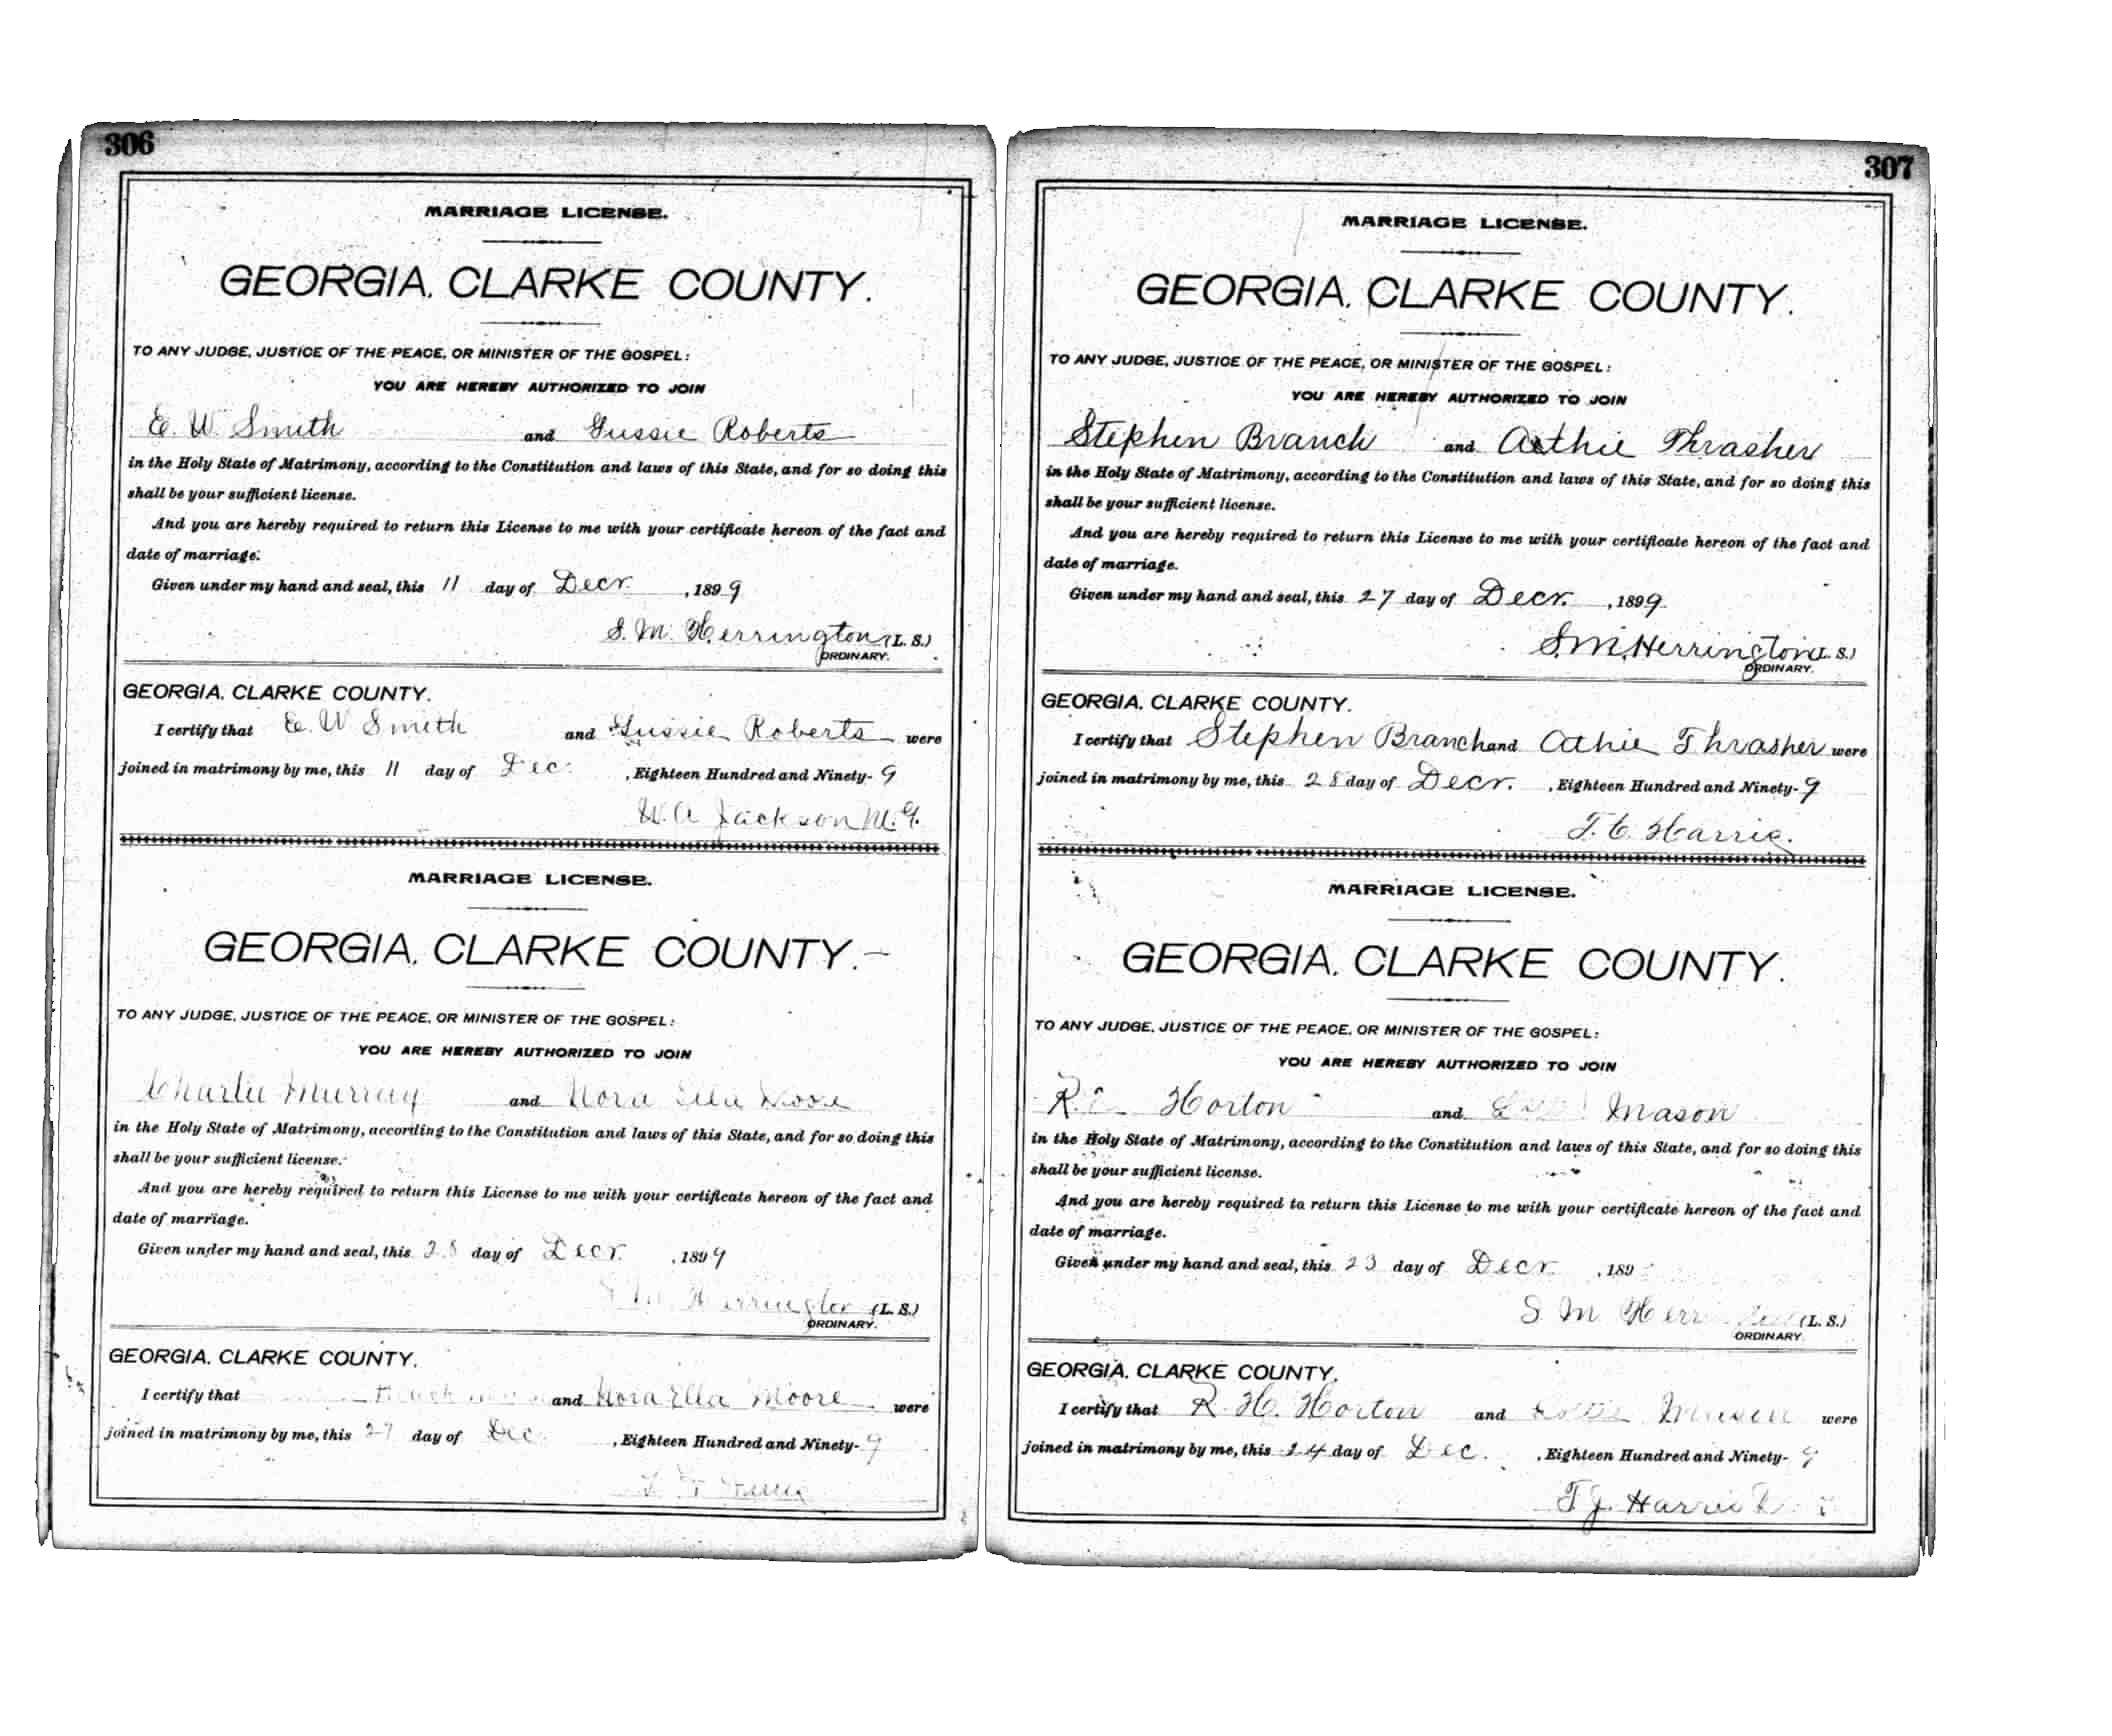 306
MARRIAGE LICENSE.
GEORGIA, CLARKE COUNTY.
TO ANY JUDGE, JUSTICE OF THE PEACE, OR MINISTER OF THE GOSPEL:
YOU ARE HEREBY AUTHORIZED TO JOIN
E. W. Smith and Gussie Roberts
in the Holy State of Matrimony, according to the Constitution and laws of this State, and for so doing this
shall be your sufficient license.
And you are hereby required to return this License to me with your certificate hereon of the fact and
date of marriage.
Given under my hand and seal, this 11 day of Decr. , 1899
S. M. Herrington (L. S.)
ORDINARY.
GEORGIA, CLARKE COUNTY.
I certify that E. W Smith and Gussie Roberts were
joined in matrimony by me, this 11 day of Dec. , Eighteen Hundred and Ninety-9
W. A Jackson M.G.
MARRIAGE LICENSE.
GEORGIA, CLARKE COUNTY.
TO ANY JUDGE, JUSTICE OF THE PEACE, OR MINISTER OF THE GOSPEL:
YOU ARE HEREBY AUTHORIZED TO JOIN
Charlie Murray and Nora Ella Moore
in the Holy State of Matrimony, according to the Constitution and laws of this State, and for so doing this
shall be your sufficient license.
And you are hereby required to return this License to me with your certificate hereon of the fact and
date of marriage.
Given under my hand and seal, this 28 day of Decr. , 1899
M. Herrington (L. S.)
ORDINARY.
GEORGIA, CLARKE COUNTY.
I certify that and Nora Ella Moore were
joined in matrimony by me, this day of Dec. , Eighteen Hundred and Ninety-9
307
MARRIAGE LICENSE.
GEORGIA, CLARKE COUNTY.
TO ANY JUDGE, JUSTICE OF THE PEACE, OR MINISTER OF THE GOSPEL:
YOU ARE HEREBY AUTHORIZED TO JOIN
Stephen Branch and Athie Thrasher
in the Holy State of Matrimony, according to the Constitution and laws of this State, and for so doing this
shall be your sufficient license.
And you are hereby required to return this License to me with your certificate hereon of the fact and
date of marriage.
Given under my hand and seal, this 27 day of Decr. , 1899.
S. M. Herrington (L. S.)
ORDINARY.
GEORGIA, CLARKE COUNTY.
I certify that Stephen Branch and Athie Thrasher were
joined in matrimony by me, this 28 day of Decr. , Eighteen Hundred and Ninety-9
T. C. Harris.
MARRIAGE LICENSE.
GEORGIA, CLARKE COUNTY.
TO ANY JUDGE, JUSTICE OF THE PEACE, OR MINISTER OF THE GOSPEL:
YOU ARE HEREBY AUTHORIZED TO JOIN
R. Horton and Mason
in the Holy State of Matrimony, according to the Constitution and laws of this State, and for so doing this
shall be your sufficient license.
And you are hereby required to return this License to me with your certificate hereon of the fact and
date of marriage.
Given under my hand and seal, this 23 day of Decr. , 189
S. M. (L. S.)
ORDINARY.
GEORGIA, CLARKE COUNTY.
I certify that R. H. Horton and were
joined in matrimony by me, this 24 day of Dec. , Eighteen Hundred and Ninety-9
T. J. Harris